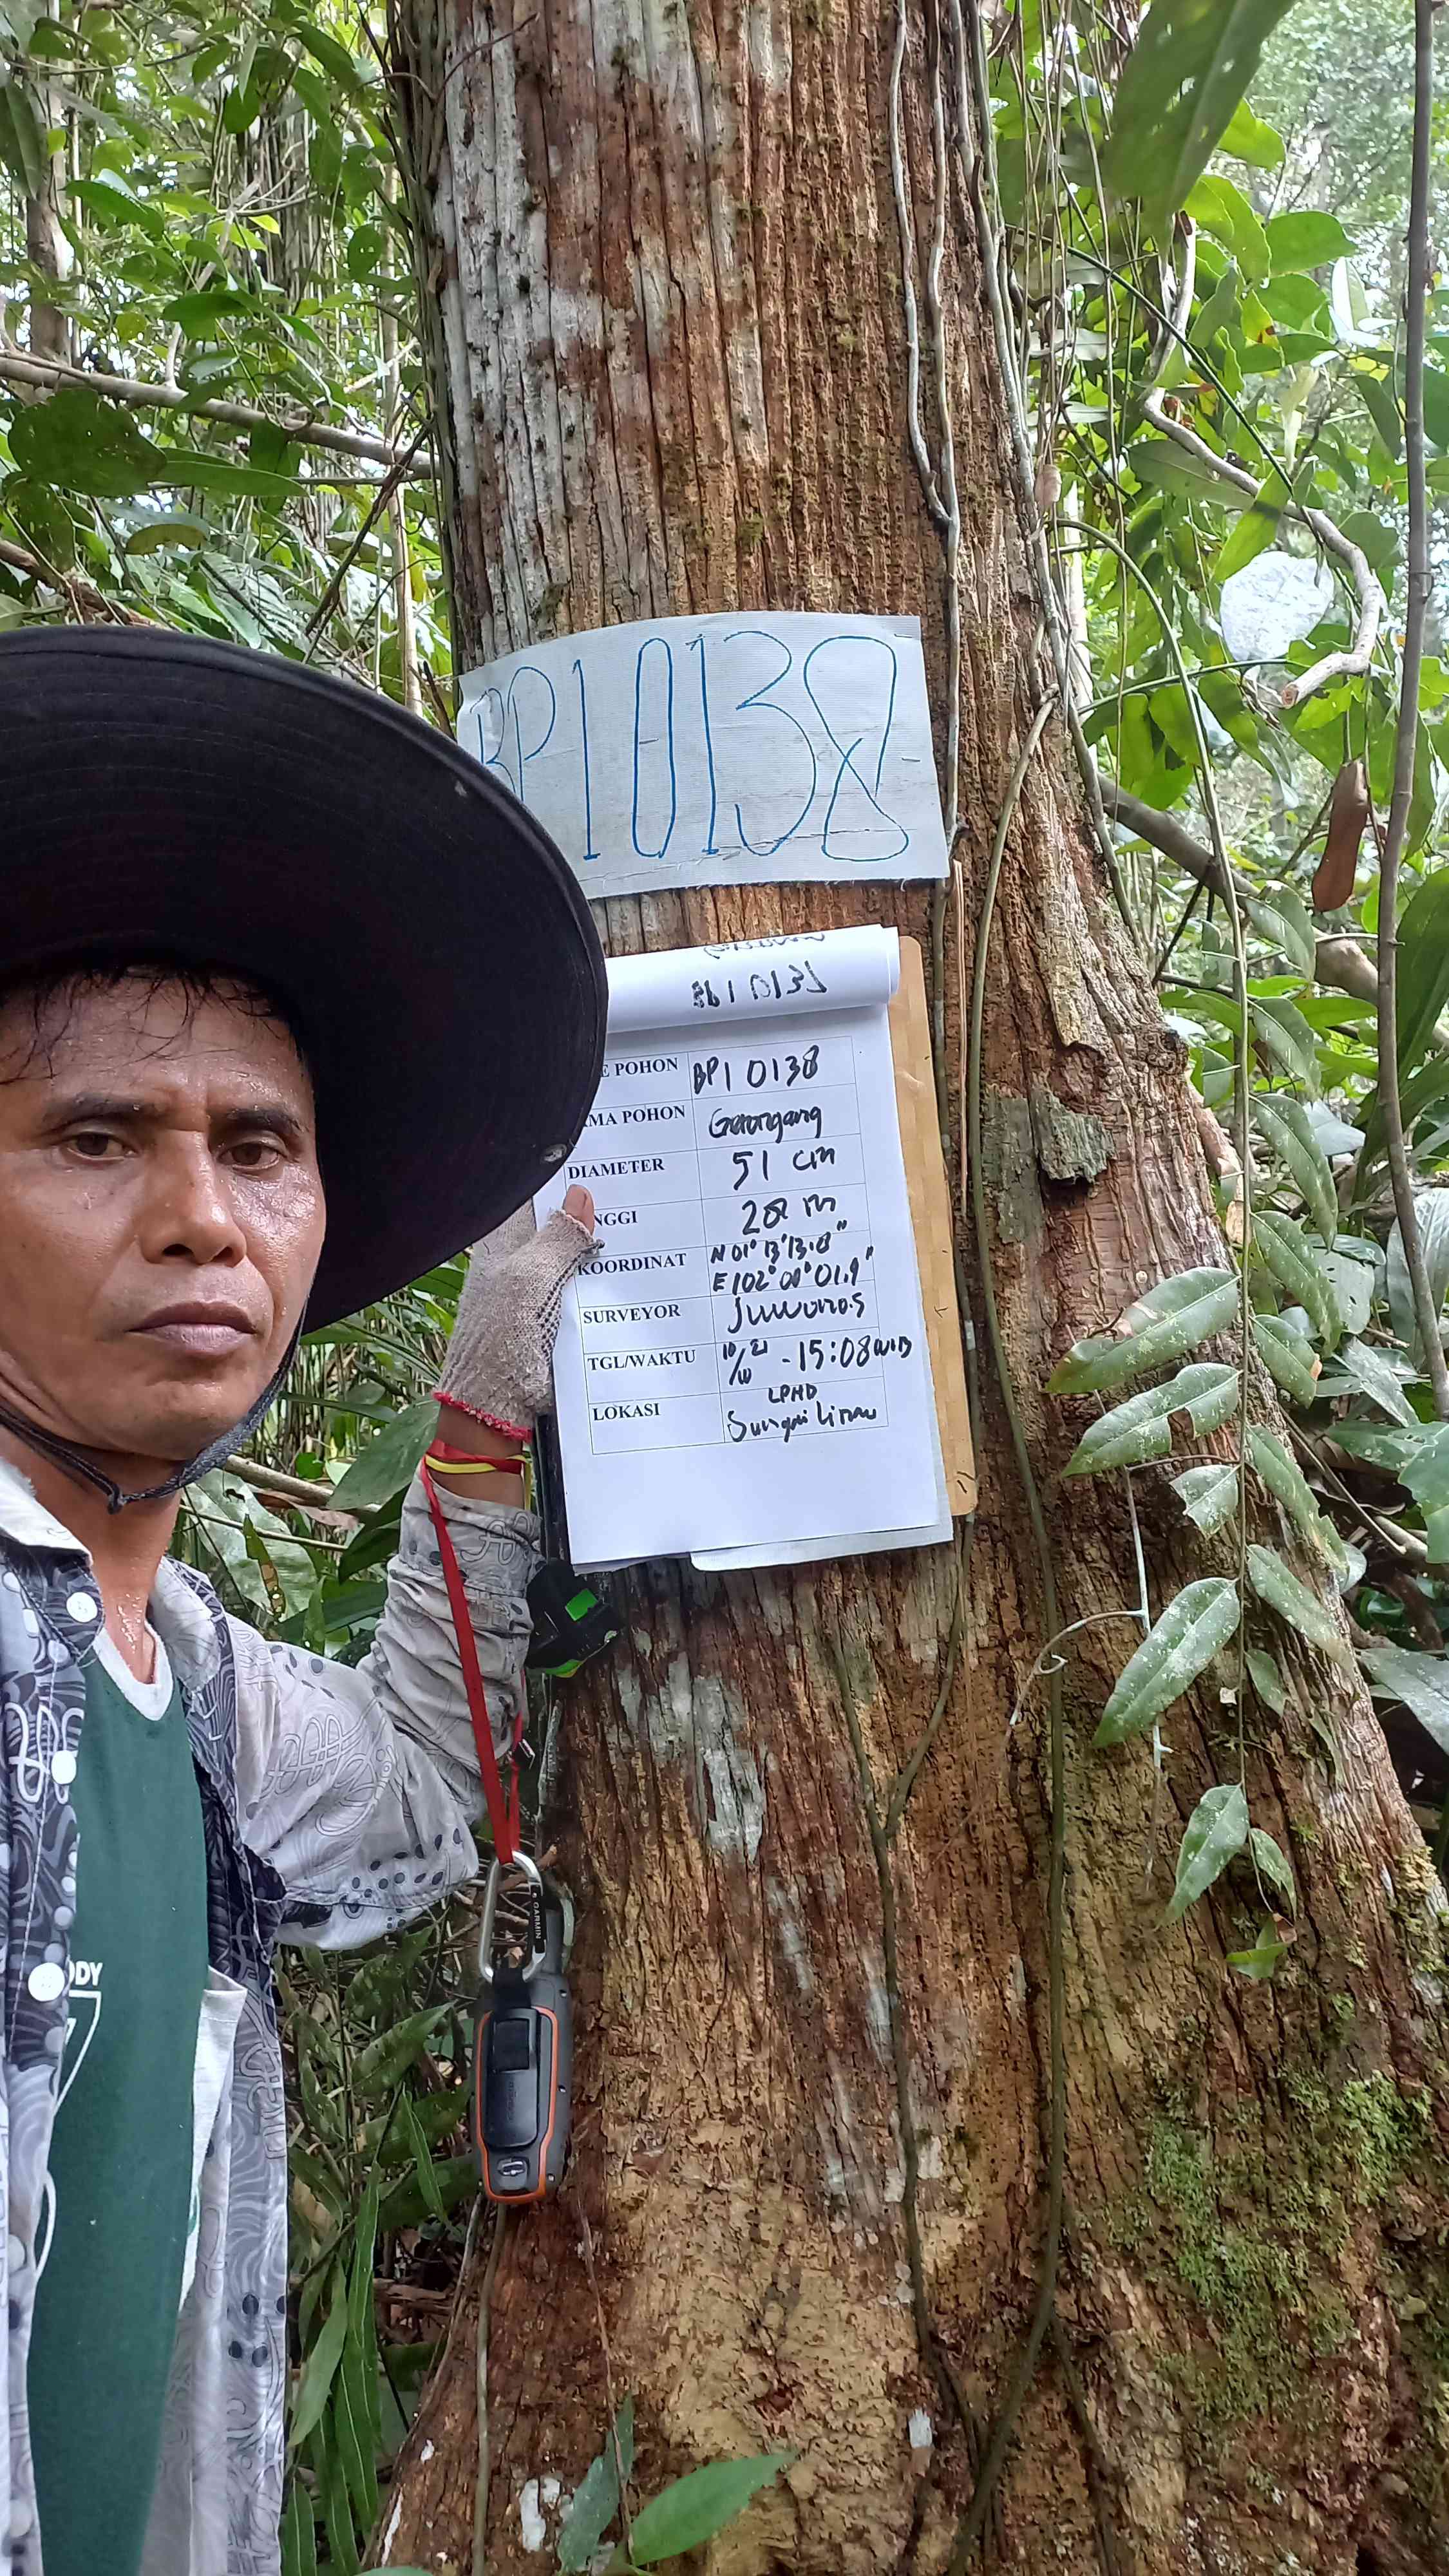 BP10138
BP1 0138
E POHON BP1 0138
MA POHON Gerongang
DIAMETER 51 cm
NGGI 28 m
KOORDINAT N 01° 13' 13.8"
E 102° 00' 01.9"
SURVEYOR Juwono.S
TGL/WAKTU 10/10 21 - 15:08 WIB
LOKASI LPHD
Sungai Linau
GARMIN
ODY